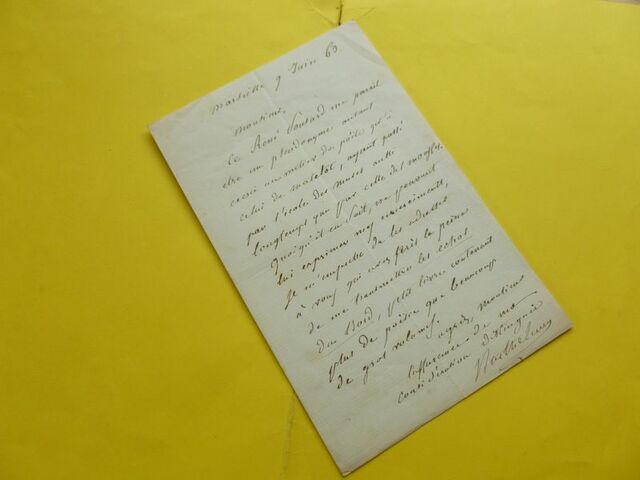 Marseille 9 Juin 63.
Monsieur,
Ce René Soutard me parait
être un pseudonyme autant
exercé au métier du poète qu'à
celui de matelot, ayant passé
par l'école des muses aussi
longtemps que par celle des
Quoiqu'il en soit, ne pouvant
lui exprimer mes remerciements,
je m'empresse de les adresser
à vous qui avez pris la peine
de me transmettre les échos
du Bord, petit livre contenant
plus de poésie que beaucoup
de gros volumes.
agréez, monsieur
l'assurance de ma
considération distinguée